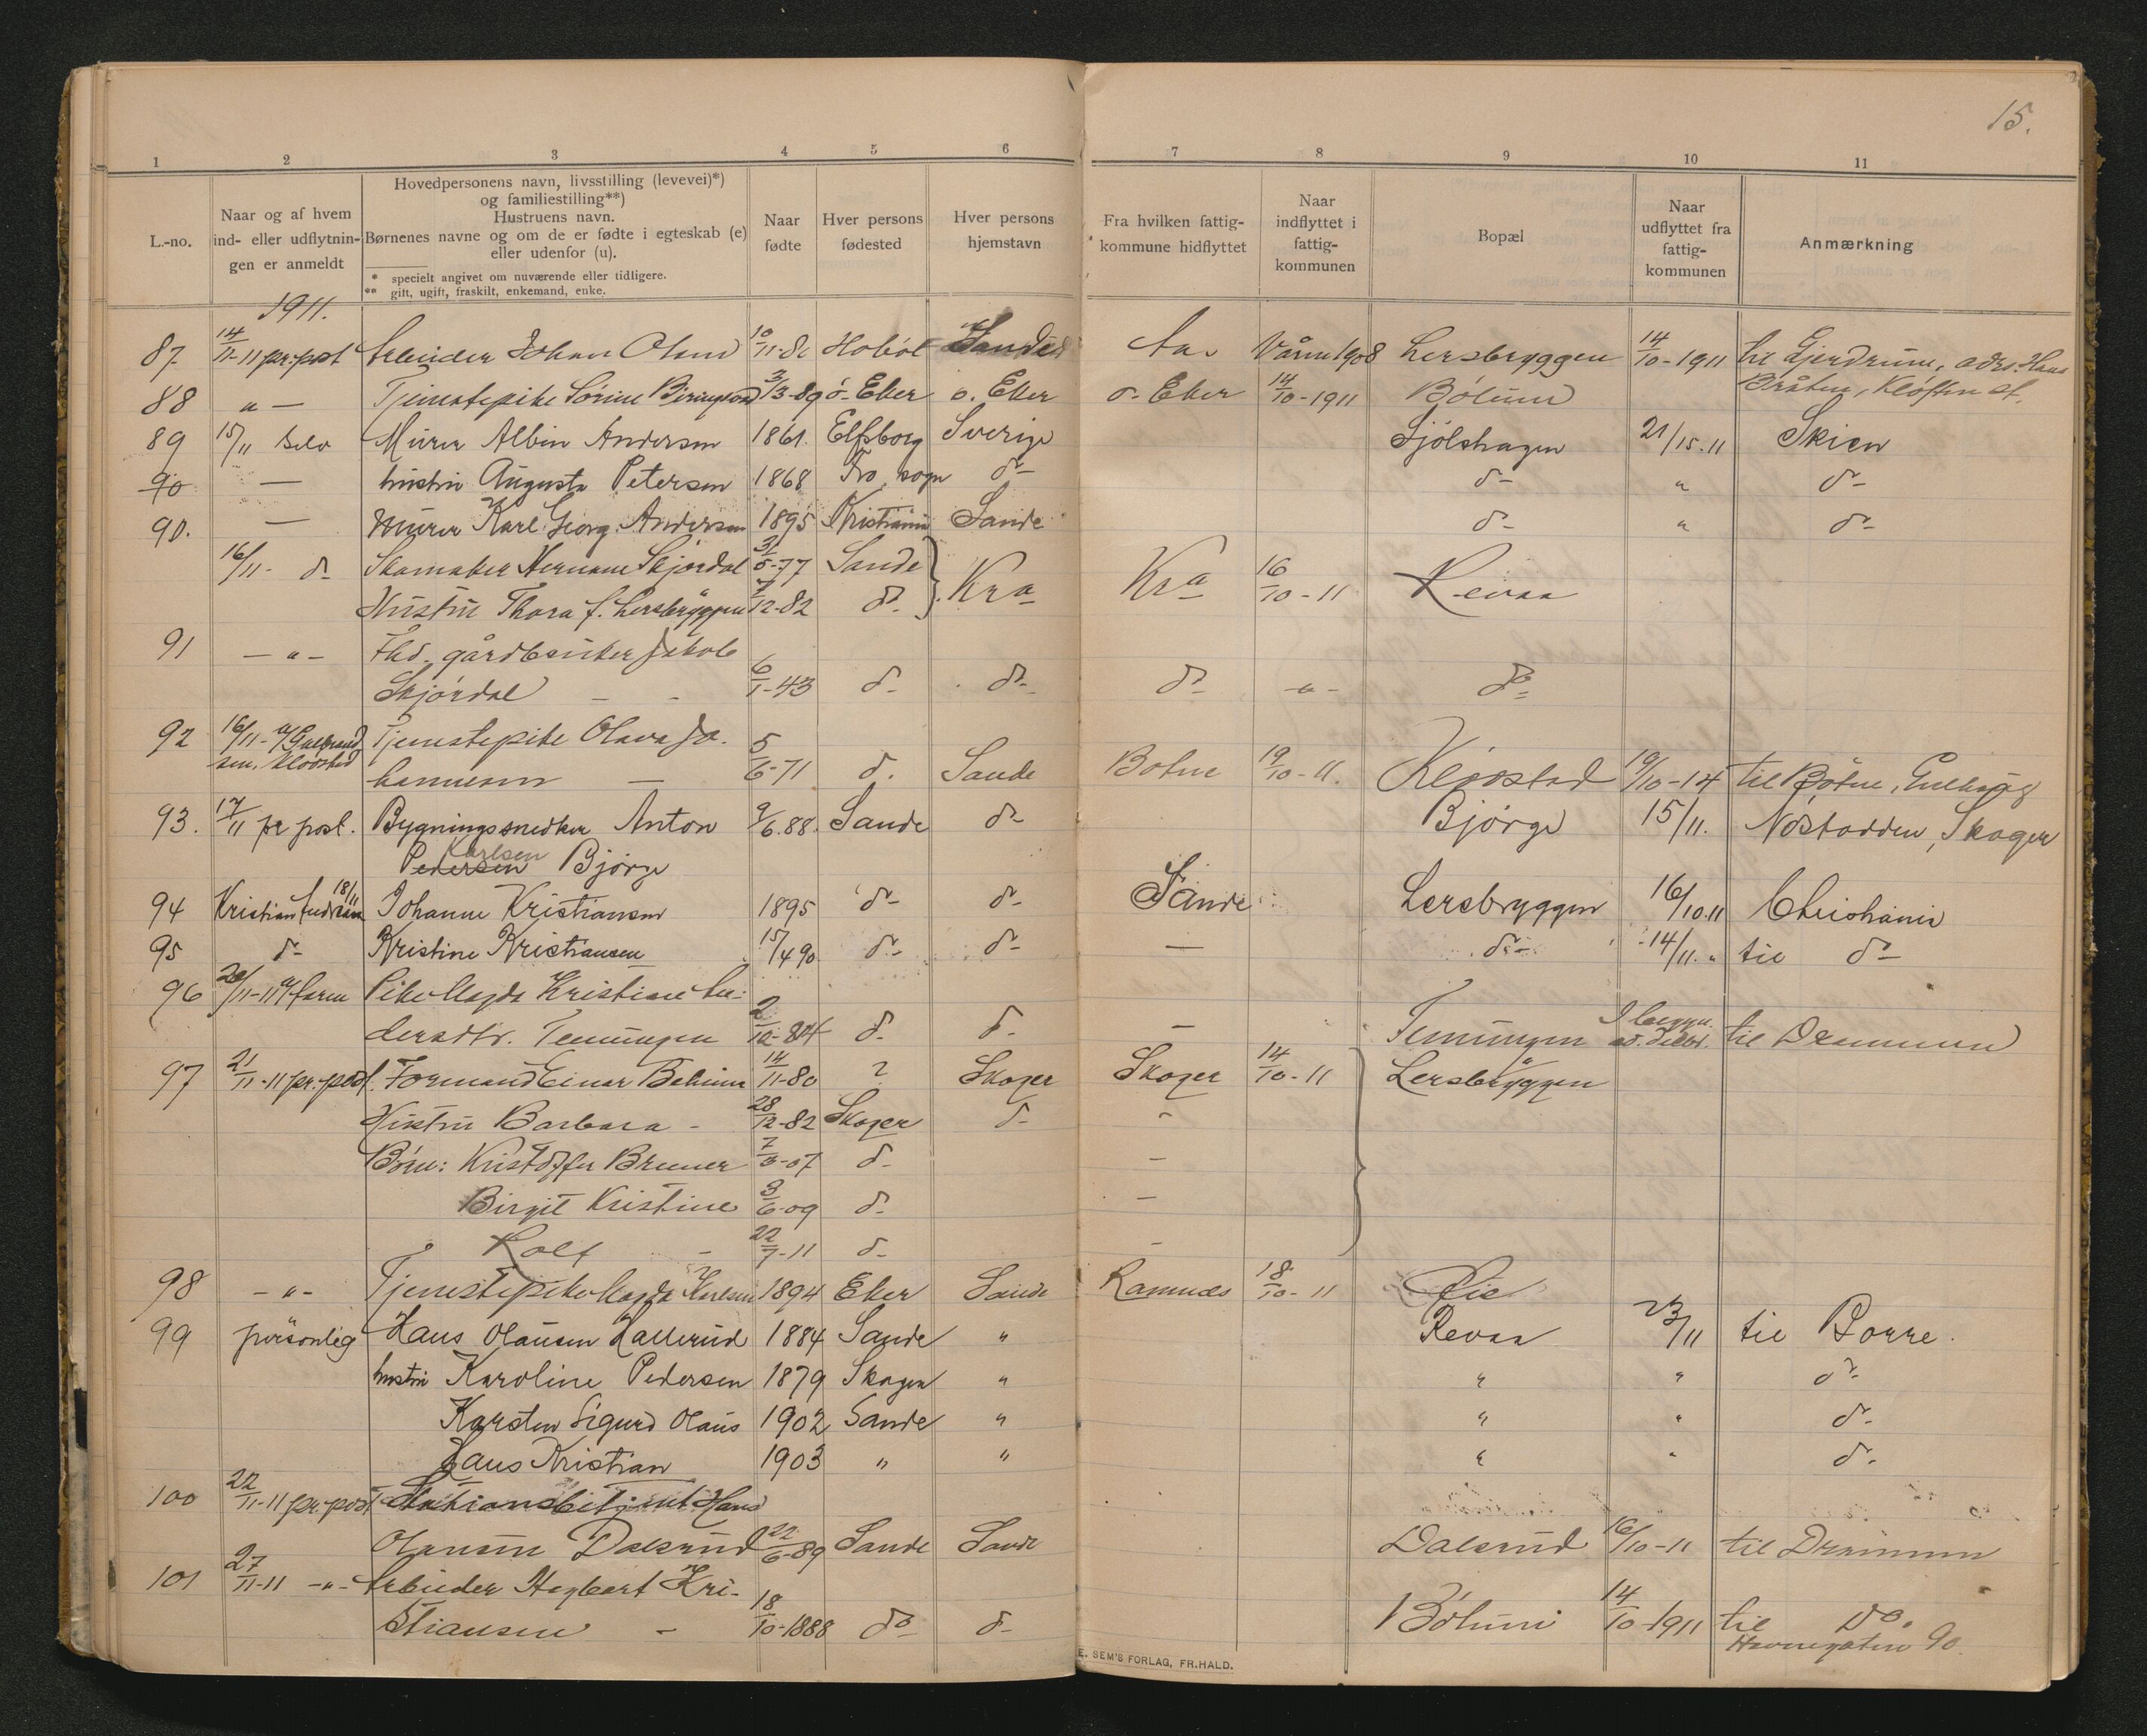 15.
1 2 3 4 5 6 7 8 9 10 11
L.-no.
Naar og af hvem
ind- eller udflytnin-
gen er anmeldt
Hovedpersonens navn, livsstilling (levevei)*)
og familiestilling**)
Hustruens navn.
Børnenes navne og om de er fødte i egteskab (e)
eller udenfor (u).
* specielt angivet om nuværende eller tidligere.
** gift, ugift, fraskilt, enkemand, enke.
Naar
fødte
Hver persons
fødested
Hver persons
hjemstavn
Fra hvilken fattig-
kommune hidflyttet
Naar
indflyttet i
fattig-
kommunen
Bopæl
Naar
udflyttet fra
fattig-
kommunen
Anmærkning
1911.
87 14/11-11 pr. post Arbeider Johan Olsen 10/11-81 Hobøl Sande Aas Våren 1908 Lersbryggen 14/10-1911 til Gjerdrum, adrs. Hans
Bråten, Kløften st.
88 " — Tjenstepike Sørine 3/3-89 ø. Eker ø. Eker ø. Eker 14/10-1911 Bølum
89 15/11 selv Murer Albin Andersen 1861. Elfsborg Sverige Sjølshagen 21/15.11 Skien
90 — hustru Augusta Petersen 1868 Fro sogn do do " do
90. — Murer Karl Georg Andersen 1895 Kristiania Sande do " do
16/11- do Skomaker Herman Skjørdal 3/5-77 Sande Kra Kra 16/10-11 Revaa
Hustru Thora f. Lersbryggen 7/12-82 do
91 — " — Fhd. gårdbruker Jakob
Skjørdal — 6/1-43 do do do — " — do
92 16/11- a/ Gulbrand Tjenstepike Olava Jo-
sen, Klovstad hannesen — 5/6-71 do Sande Botne 19/10-11. Klovstad 19/10-14 til Botne, Gulhaug
93. 17/11 pr post. Bygningssnedker Anton 9/6.88. Sande do Bjørge 15/11. Nøstodden, Skoger
Karlsen
Pedersen Bjørge
94 Kristian Andersen 18/11 Johanne Kristiansen 1895 do do Sande Lersbryggen 16/10.11 Christiania
95 do Kristine Kristiansen 15/4 90 do do — do 14/11. " til do
96 20/11-11 a/ faren Pike Magda Kristiane An-
dersdtr. Temungen 2/12-84 do do — Temungen I begyn.
til Drammen
97 21/11-11 pr. post. Formand Einar Behrum 14/11-80 ? Skoger Skoger 14/10-11 Lersbryggen
Hustru Barbara - 28/12-82 Skoger do -
Børn: Kristoffer Bruuer 7/3-07 do —
Birgit Kristine 3/6-09 do —
Rolf - 22/7-11 do -
98 — " — Tjenstepike Magda Karlsen 1894 Eker Sande Ramnæs 18/10-11 Lie
99 personlig Hans Olausen Hallerud 1884 Sande " Revaa 23/11 til Borre.
hustru Karoline Pedersen 1879 Skoger " " " do
Karsten Sigurd Olaus 1902 Sande " " " do
Hans Kristian 1903 " " " " do
100 22/11-11 pr. post Stationsbetjent Hans
Olausen Dalsrud 22/6-89 Sande Sande Dalsrud 16/10-11 til Drammen
101 27/11-11 — " — Arbeider Hagbart Kri-
stiansen — 18/10-1888 do do Bølum 14/10-1911 til Do.
Havnegaten 90
E. SEM'S FORLAG, FR.HALD.